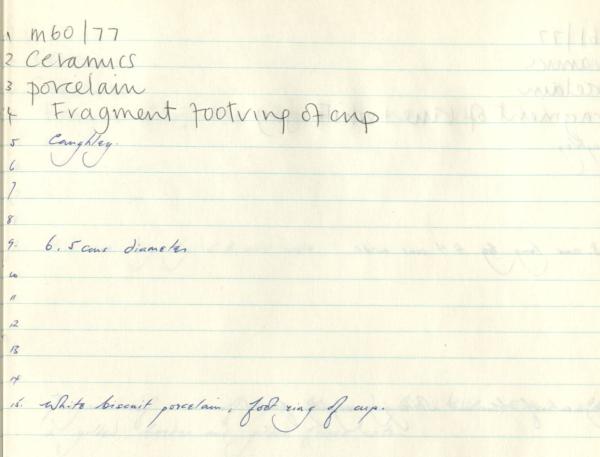 1 m60/77
2 Ceramics
3 porcelain
4 Fragment footring of cup
5 Caughley.
6
7
8.
9. 6.5cms diameter
10
11
12
13
14
15. white biscuit porcelain, foot ring of cup.